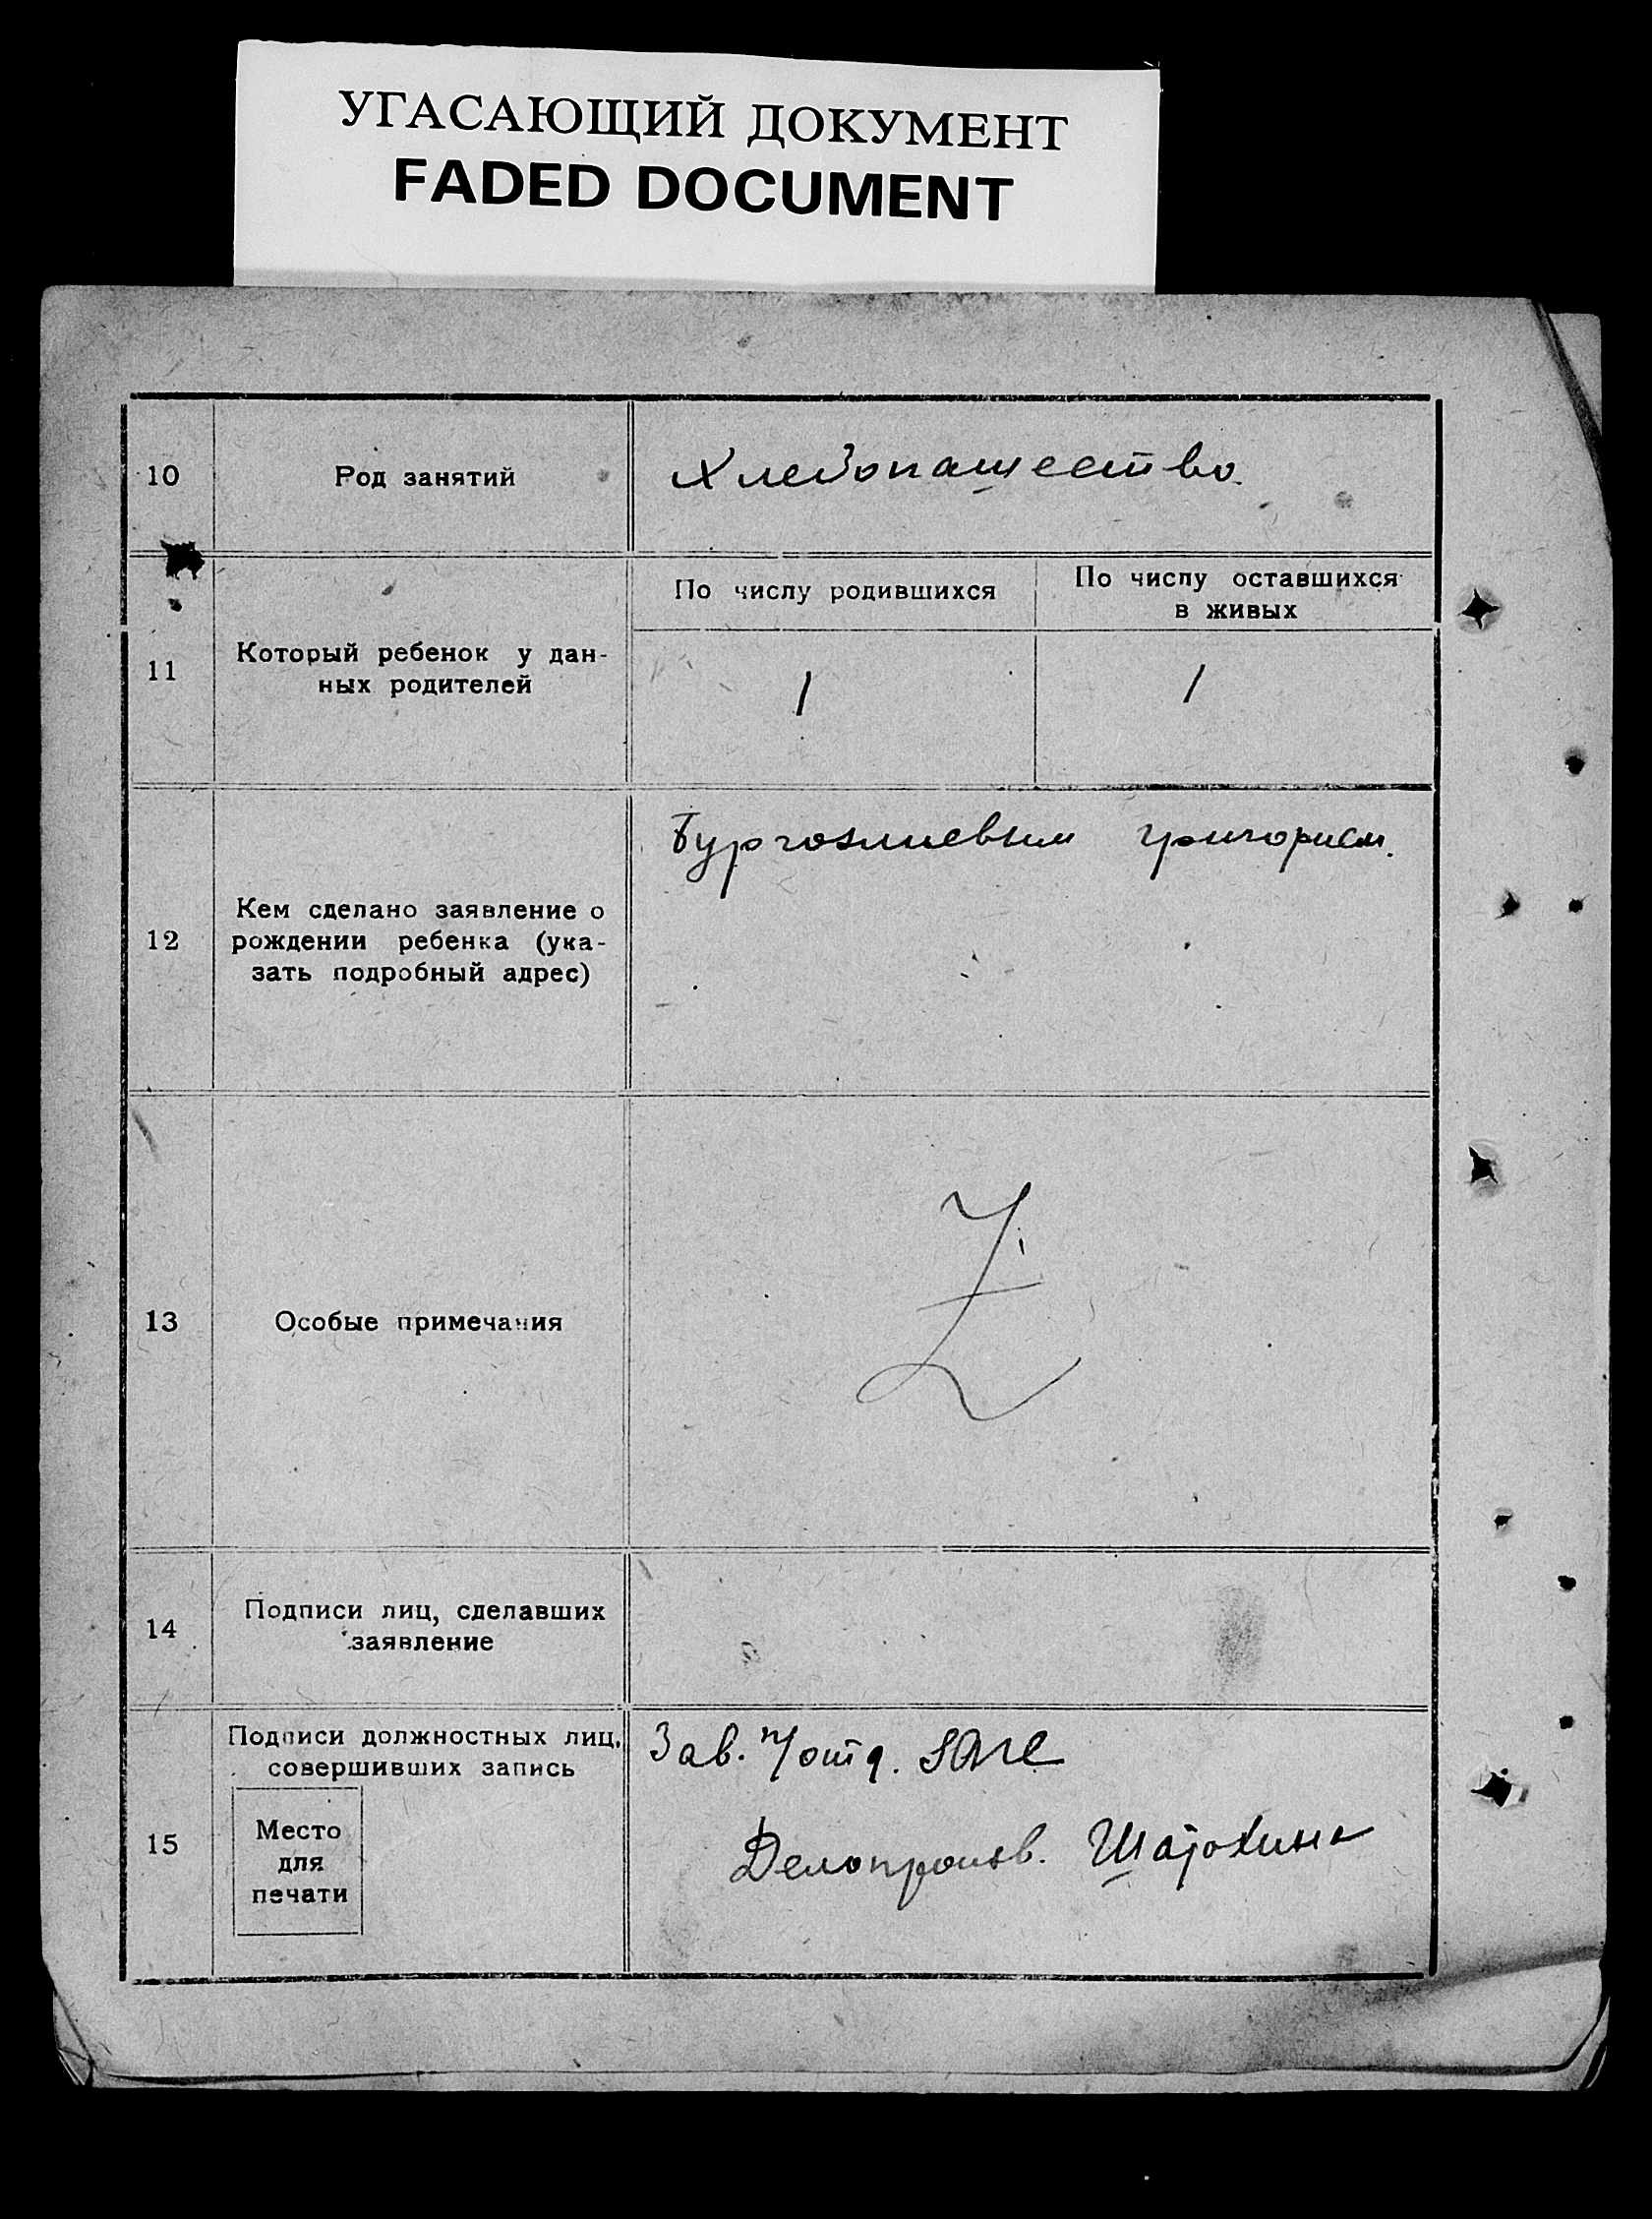 УГАСАЮЩИЙ ДОКУМЕНТ
FADED DOCUMENT
10
Род занятий
Хлебопашество.
11
Который ребенок у дан-
ных родителей
По числу родившихся
По числу оставшихся
в живых
1
1
12
Кем сделано заявление о
рождении ребенка (ука-
зать подробный адрес)
Григорием.
13
Особые примечания
Z
14
Подписи лиц, сделавших
заявление
15
Подписи должностных лиц,
совершивших запись
Место
для
печати
Зав.
Делопроизв. Шатохина